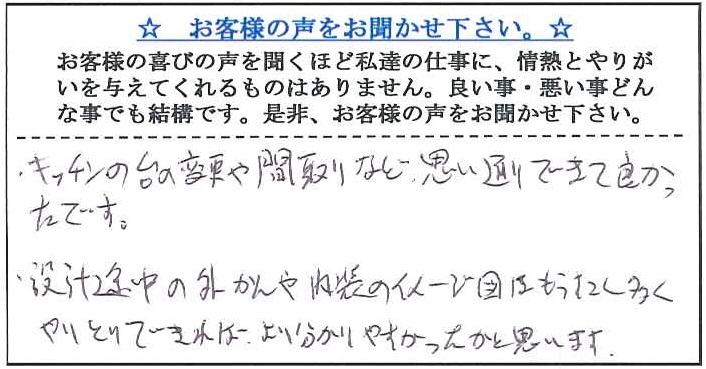 ☆ お客様の声をお聞かせ下さい。☆
お客様の喜びの声を聞くほど私達の仕事に、情熱とやりが
いを与えてくれるものはありません。良い事・悪い事どん
な事でも結構です。是非、お客様の声をお聞かせ下さい。
・キッチンの台の変更や間取りなど、思い通りできて良かっ
たです。
・設計途中の外かんや内装のイメージ図はもう少し多く
やりとりできれば、より分かりやすかったかと思います。